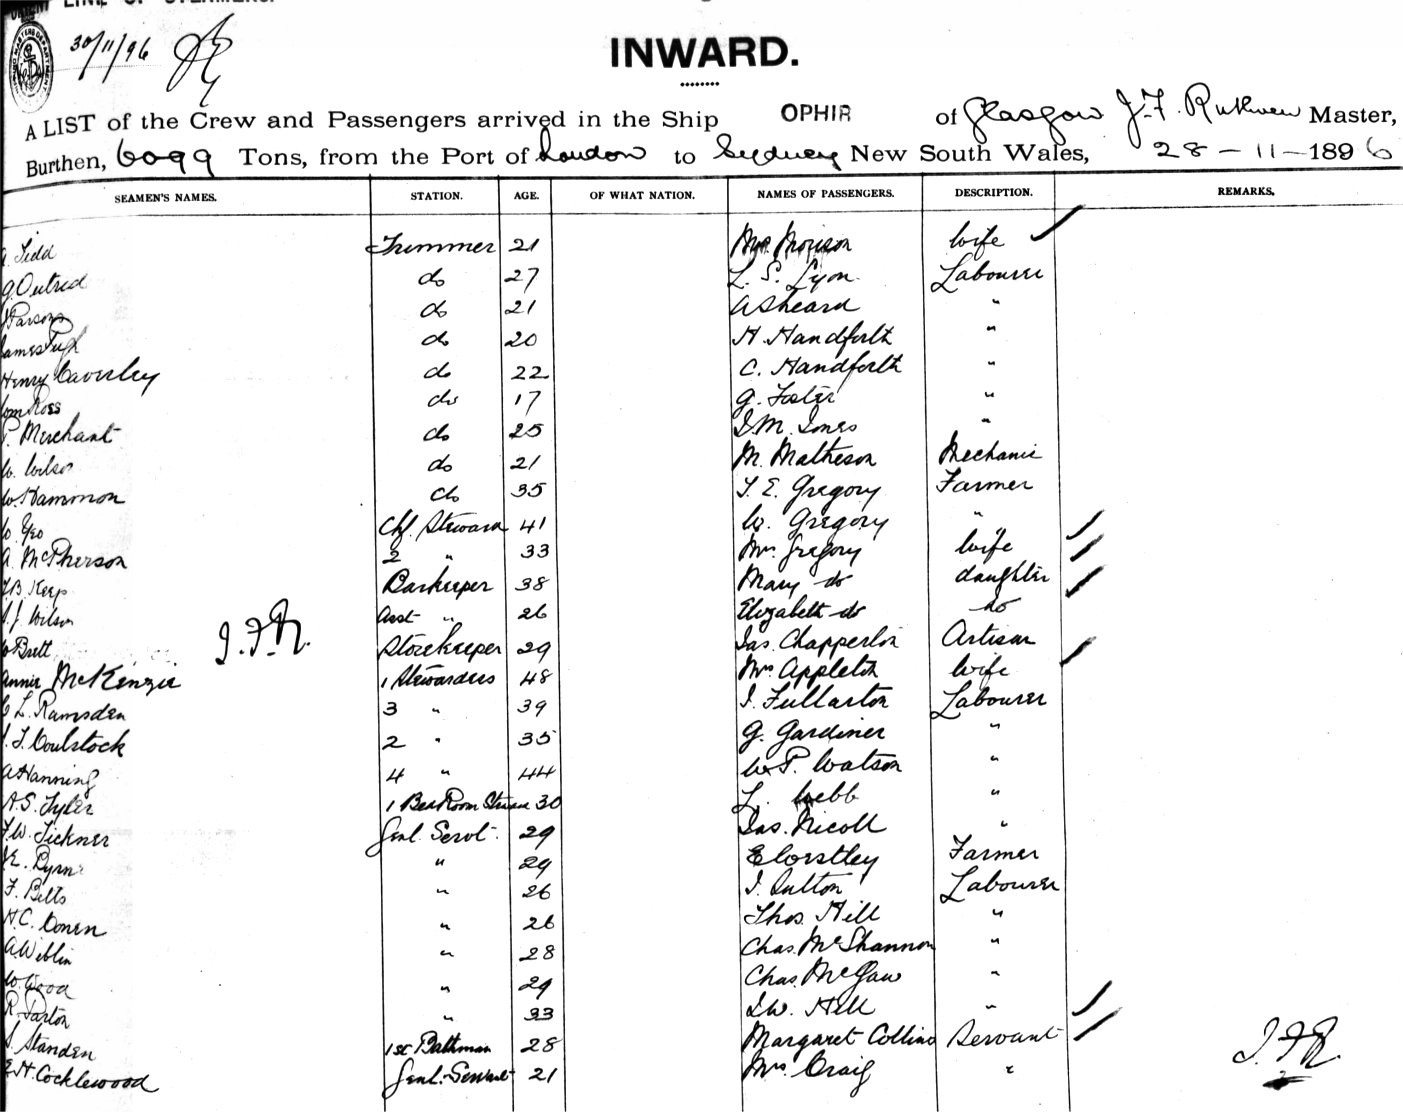 LINE OF STEAMERS.
30/11/96
INWARD.
A LIST of the Crew and Passengers arrived in the Ship OPHIR of Glasgow J.F. Ruthven Master,
Burthen, 6099 Tons, from the Port of London to Sydney New South Wales, 28-11-1896
SEAMEN'S NAMES. STATION. AGE. OF WHAT NATION. NAMES OF PASSENGERS. DESCRIPTION. REMARKS.
Tidd Trimmer 21 Mrs Morison wife
G. Outred do 27 L. S. Lyon Labourer
J Parsons do 21 A Sheard "
James Pugh do 20 H. Handforth "
Henry Caverley do 22 C. Handforth "
Wm Ross do 17 G. Foster "
P. Merchant do 25 J.M. Jones "
W. Wilson do 21 M. Matheson Mechanic
W. Hammon do 35 T. E. Gregory Farmer
W. Yeo Chf. Steward 41 W. Gregory "
A. McPherson 2 " 33 Mrs Gregory wife
Keep Barkeeper 38 Mary do daughter
J. Wilson Asst " 26 Elizabeth do do
J.F.R.
Brett Storekeeper 29 Jas. Chapperlin Artisan
Annie McKenzie 1 Stewardess 48 Mrs Appleton wife
L. Ramsden 3 " 39 J. Fullarton Labourer
Coulstock 2 " 35 G. Gardiner "
A Hanning 4 " 44 W. P. Watson "
A. S. Tyler 1 Bed Room Stewd 30 L. Webb "
F.W. Tickner Genl. Servt. 29 Jas. Nicoll "
E. Byrne " 29 E Worstley Farmer
F. Betts " 26 J. Sutton Labourer
H.C. Conen " 26 Thos. Hill "
A Weblin " 28 Chas. McShannon "
W. Good " 29 Chas. McGaw "
R. Parton " 33 J.W. Hill "
S. Standen 1st Bathman 28 Margaret Collins Servant
E.H. Cocklewood Genl. Servant 21 Mrs. Craig "
J.F.R.